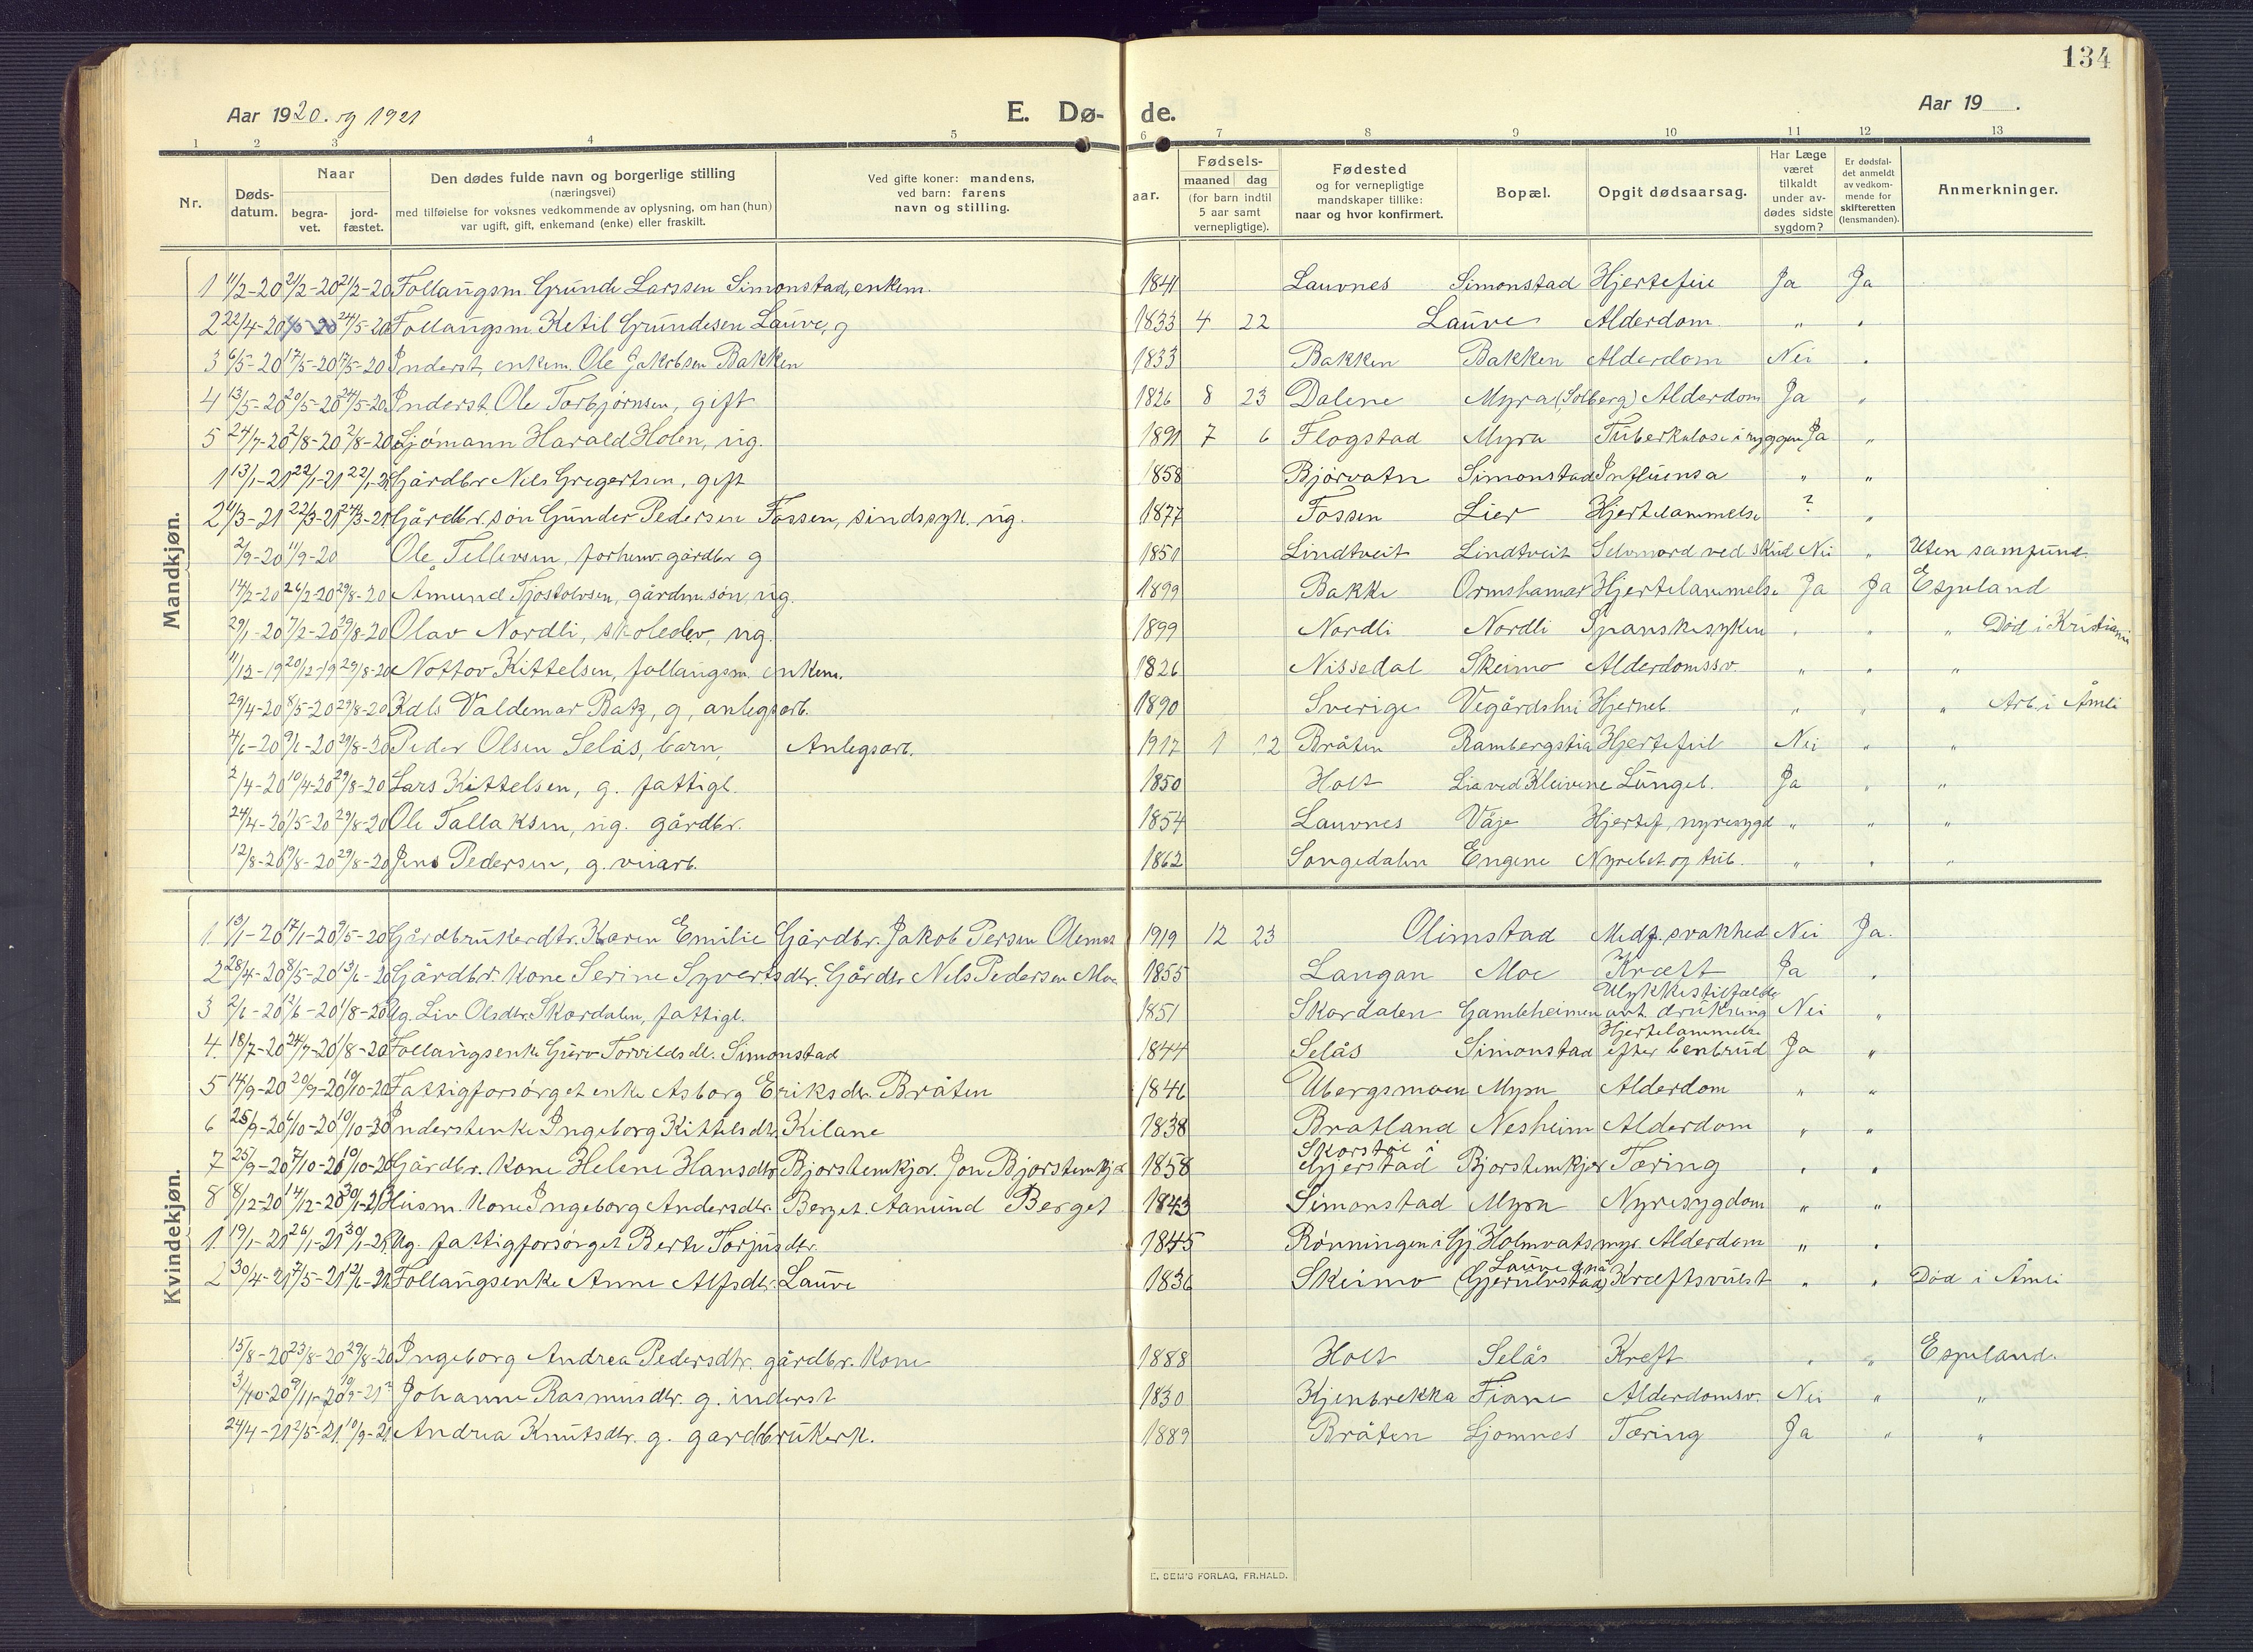 134
Aar 1920. og 1921
E. Dø- de.
Aar 19 .
1 2 3 4 5 6 7 8 9 10 11 12 13
Nr.
Døds-datum.
Naar
begra-vet.
jord-fæstet.
Den dødes fulde navn og borgerlige stilling
(næringsvei)
med tilføielse for voksnes vedkommende av oplysning, om han (hun)
var ugift, gift, enkemand (enke) eller fraskilt.
Ved gifte koner: mandens,
ved barn: farens
navn og stilling.
aar.
Fødsels-
maaned dag
(for barn indtil
5 aar samt
vernepligtige).
Fødested
og for vernepligtige
mandskaper tillike:
naar og hvor konfirmert.
Bopæl.
Opgit dødsaarsag.
Har Læge
været
tilkaldt
under av-
dødes sidste
sygdom?
Er dødsfal-
det anmeldt
av vedkom-
mende for
skifteretten
(lensmanden).
Anmerkninger.
Mandkjøn.
1 11/2-20 21/2-20 21/2-20 Follaugsm. Grunde Larssen Simonstad, enkem. 1841 Lauvnes Simonstad Hjertefeil Ja Ja
2 22/4-20 24/5-20 Follaugsm. Ketil Grundesen Lauve, g 1833 4 22 Lauve Alderdom „ „
3 6/5-20 17/5-20 17/5-20 Inderst, enkem. Ole Jakobsen Bakken 1833 Bakken Bakken Alderdom Nei „
4 13/5-20 20/5-20 24/5-20 Inderst. Ole Torbjørnsen, gift 1826 8 23 Dalene Myra (Solberg) Alderdom Ja „
5 24/7-20 2/8-20 2/8-20 Sjømann Harald Holen, ug. 1891 7 6 Flogstad Myra Tuberkulose i ryggen Ja „
1 13/1-21 22/1-21 22/1-21 Gårdbr Nils Gregertsen, gift 1858 Bjørvatn Simonstad Influensa „ „
2 11/3-21 22/3-21 24/3-21 Gårdbr. søn Gunder Pedersen Fossen, sindssyk. ug. 1877 Fossen Lier Hjertelammelse ? „
2/9-20 11/9-20 Ole Tellevsen, forhenv. gårdbr g 1851 Lindtveit Lindtveit Selvmord ved skud Nei „ Uten samfund
14/2-20 26/2-20 29/8-20 Åmund Tjostolvsen, gårdm. søn, ug. 1899 Bakke Ormshamar Hjertelammelse Ja Ja Espeland
29/1-20 7/2-20 29/8-20 Olav Nordli, skoleelev, ug. 1899 Nordli Nordli Spanskesyken „ „ „ Død i Kristiania
11/12-19 20/12-19 29/8-20 Nottov Kittelsen, follaugsm. enkem. 1826 Nissedal Skeimo Alderdomssv. „ „ „
29/4-20 8/5-20 29/8-20 Valdemar Batz, g, anlegsarb. 1890 Sverige Vegårdshei Hjerneb. „ „ „ Arb. i Åmli
4/6-20 29/8-20 Peder Olsen Selås, barn, Anlegsarb. 1917 1 12 Bråten Rambergstia Hjertefeil Nei „ „
2/4-20 10/4-20 29/8-20 Lars Kittelsen, g. fattigl. 1850 Holt Lia ved Kleivene Lungeb. Ja „ „
24/4-20 1/5-20 29/8-20 Ole Tallaksen, ug. gårdbr. 1854 Lauvnes Våje Hjertef, nyresygd „ „ „
12/8-20 19/8-20 29/8-20 Jens Pedersen, g. veiarb. 1862 Songedalen Engene Nyrebet og tub. „ „ „
Kvindekjøn.
1. 17/1-20 9/5-20 Gårdbrukerdtr. Karen Emilie Gårdbr. Jakob Persen Olimst 1919 12 23 Olimstad Medf. svakhed Nei Ja.
2 28/4-20 8/5-20 13/6-20 Gårdbr. kone Serine Syvertsdtr. Gårdbr Nils Pedersen Moe 1855 Langan Moe Kræft Ja „
3 2/6-20 12/6-20 1/8-20 Ug. Liv Olsdtr. Skordalen, fattigl. 1851 Skordalen Gamleheimen Ulykkestilfælde ant. drukning Nei „
4. 18/7-20 24/7-20 1/8-20 Follaugsenke Guro Torvildsdt. Simonstad 1844 Selås Simonstad Hjertelammelse efter benbrud Ja „
5 14/9-20 20/9-20 10/10-20 Fattigforsørget enke Asborg Eriksdtr. Bråten 1846 Ubergsmoen Myra Alderdom „ „
6 25/9-20 6/10-20 10/10-20 Inderstenke Ingeborg Kittelsdtr Kilane 1838 Bratland Nesheim Alderdom „ „
7 25/9-20 7/10-20 10/10-20 Gårdbr. kone Helene Hansdtr Bjorstemkjer. Jon Bjorstemkjer 1858 Skorstøl i Gjerstad Bjorstemkjer Tæring „ „
8 8/12-20 14/12-20 30/1-21 Husm. kone Ingeborg Andersdtr. Berget. Aamund Berget 1843 Simonstad Myra Nyresygdom „ „
1. 19/1-21 26/1-21 30/1-21 Ug. fattigforsørget Berte Torjusdtr. 1845 Rønningen i Gj. Holmvatsmyr. Alderdom „ „
2 30/4-21 7/5-21 12/6-21 Follaugsenke Anne Alfsdtr. Lauve 1836 Skeimo Lauve (Gjerulvstad) Kræftsvulst „ „ Død i Åmli
15/8-20 23/8-20 29/8-20 Ingeborg Andrea Pedersdtr. gårdbr. kone 1888 Holt Selås Kreft „ „ Espeland.
Johanne Rasmusdtr. g. inderst 1830 Kjenbrekka Fiane Alderdomsv. Nei „ „
24/4-21 2/5-21 10/9-21 Andrea Knutsdtr. g. gardbrukerk. 1889 Bråten Ljomnes Tæring Ja „ „
E. SEM'S FORLAG, FR.HALD.